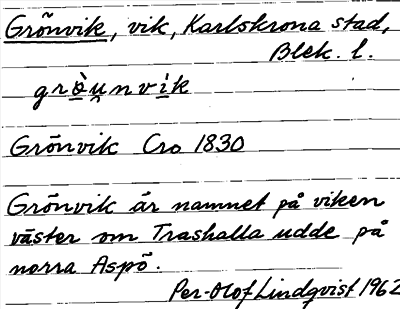 Grönvik, vik, Karlskrona stad,
Blek. l.
grö̀u̯nvìk
Grönvik Cro 1830
Grönvik är namnet på viken
väster om Trashalla udde på
norra Aspö.
Per-Olof Lindqvist 1962